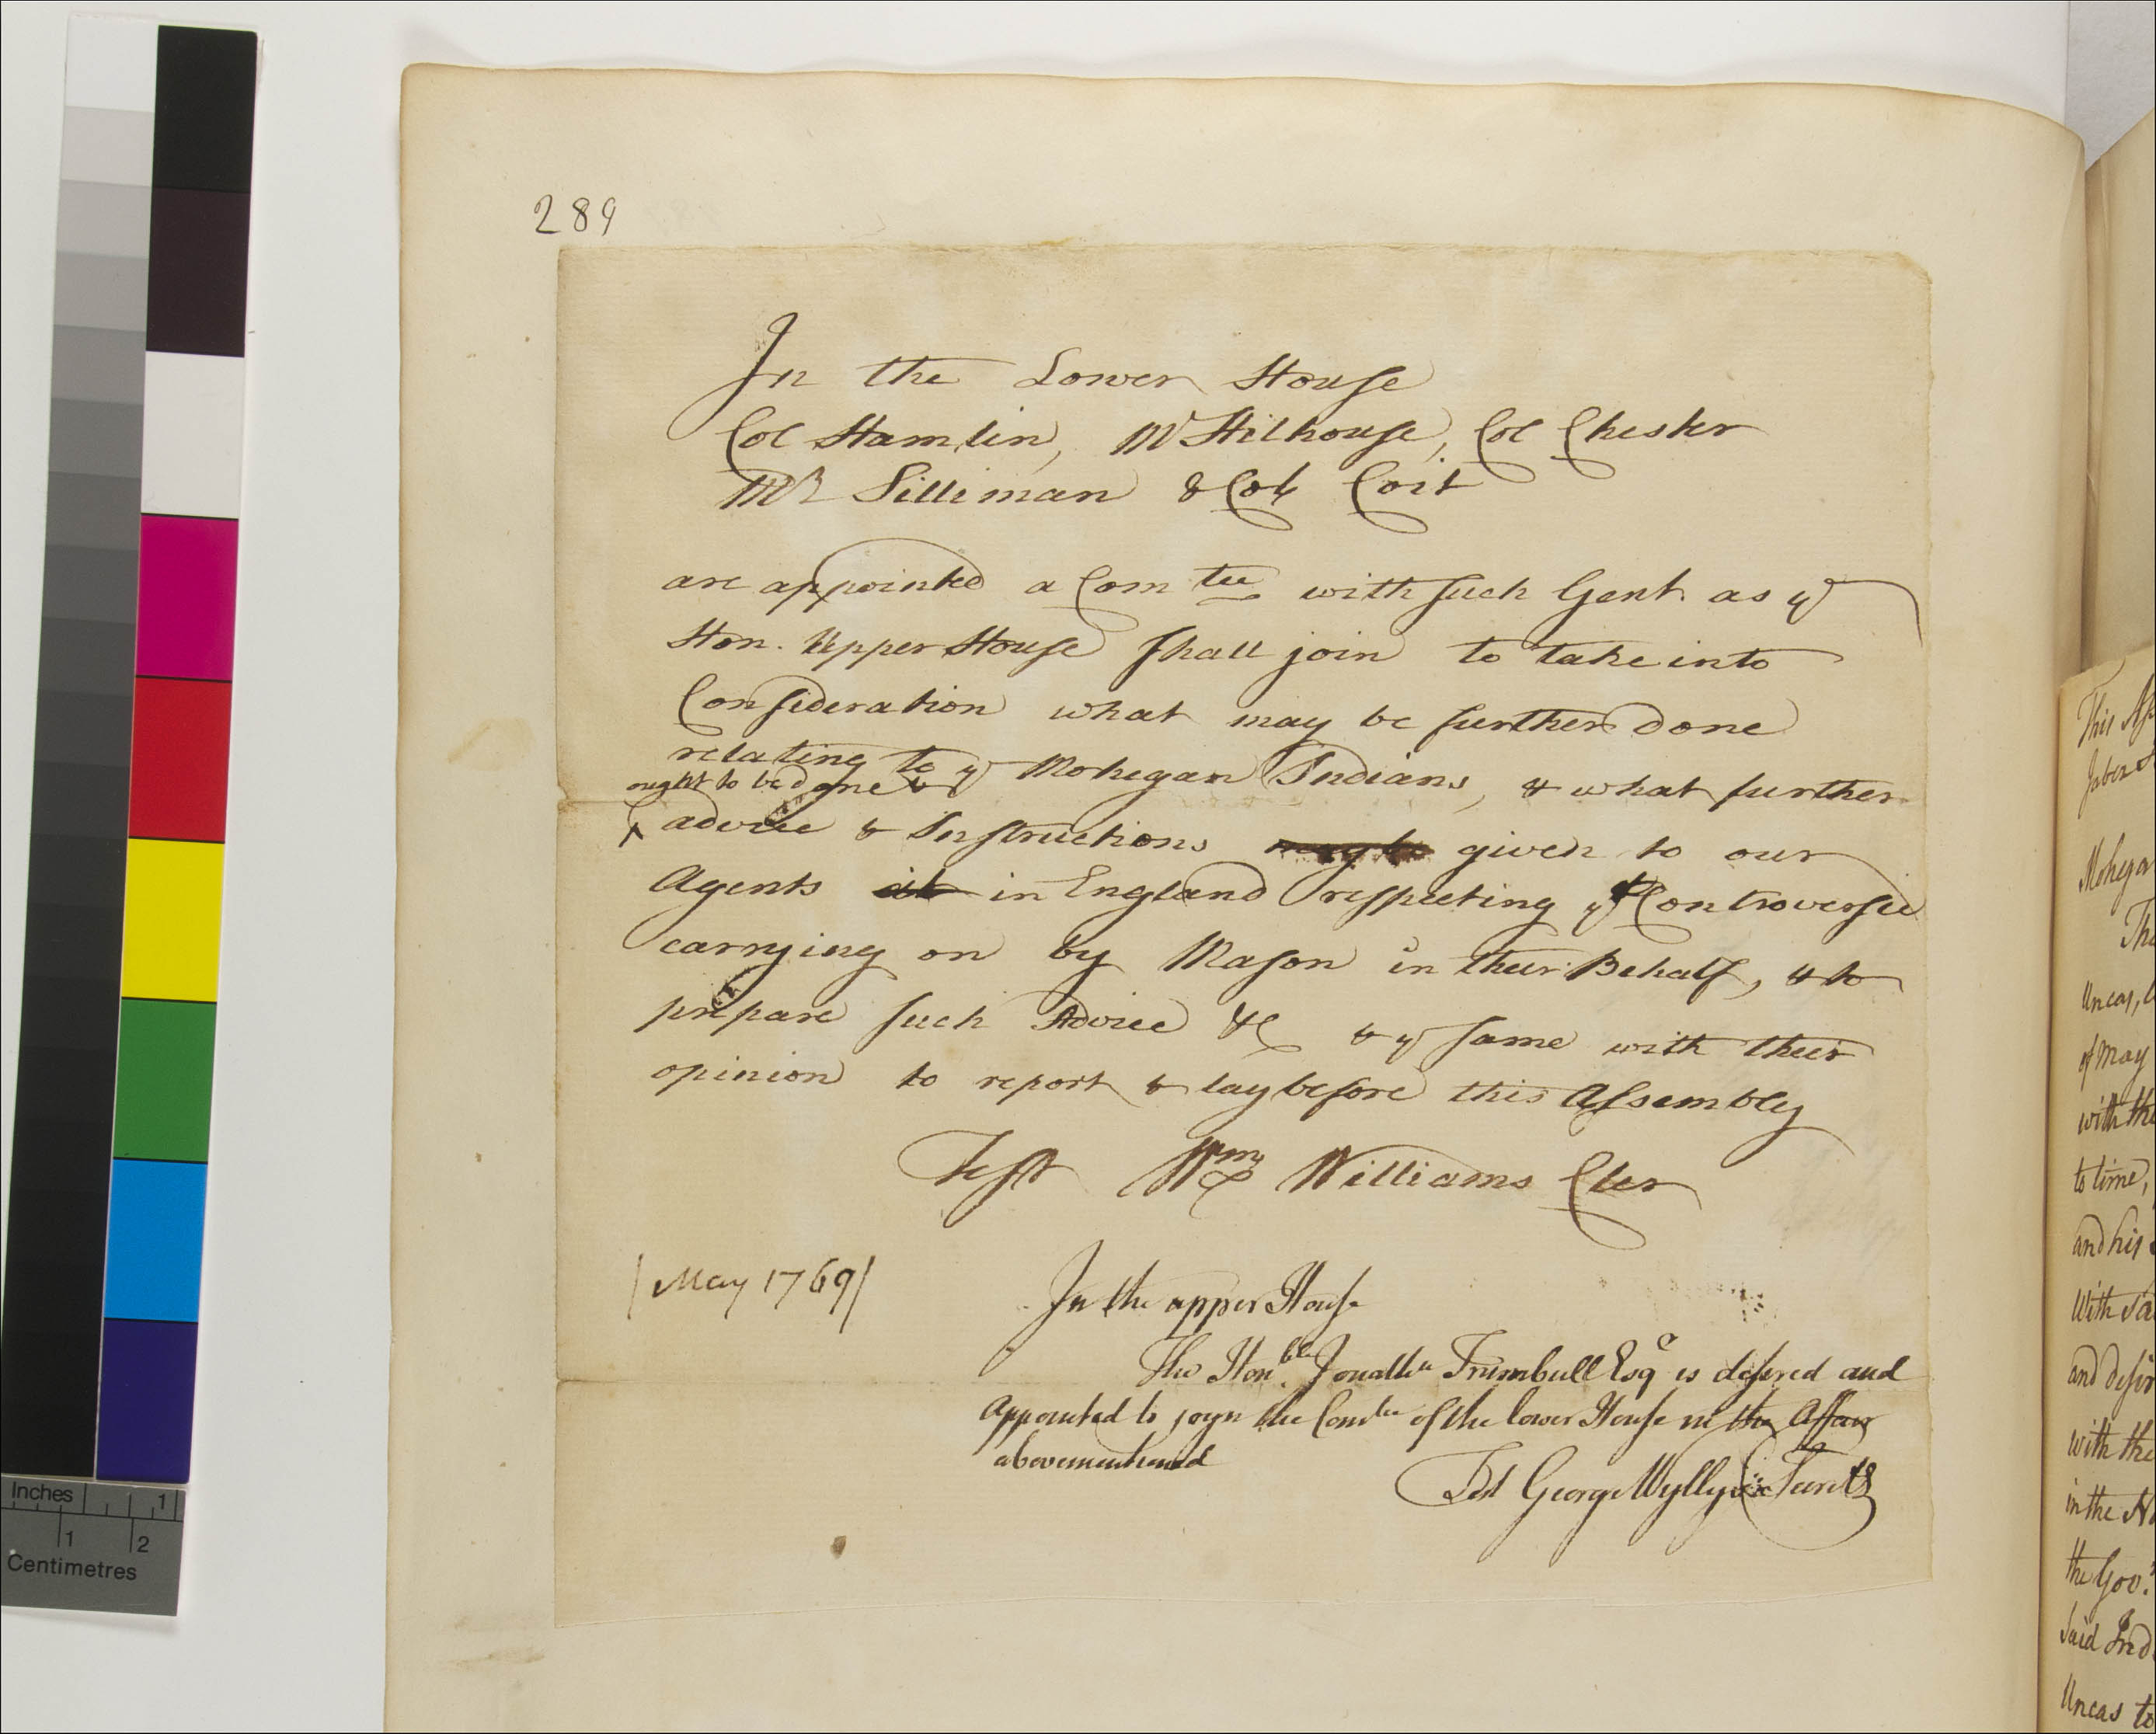 289
In the Lower House
Col Hamlin, Mr Hilhouse, Col Chester
Mr Silliman & Col Coit
are appointed a Com tee with such Gent. as ye
Hon. Upper House shall join to take into
Consideration what may be further done
relating to ye Mohegan Indians, & what further
ought to be done &
advice & Instructions may be given to our
Agents in England respecting ye Controversie
carrying on by Mason in their Behalf, & to
prepare such Advice &c & ye same with their
opinion to report & lay before this Assembly
Test Wm Williams Cler
/May 1769/
In the upper House
The Honble Jonathn Trumbull Esqr is desired and
Appointed to joyn the Comtee of the lower House in the Affair
abovementioned
Test George Wyllys Secrety
This
Jabez
Mohega
The
Uncas,
of May
with the
to time,
and his
With
and desir
with the
in the
the Gov.
Said Ind
Uncas to
Inches 1
1 2
Centimetres